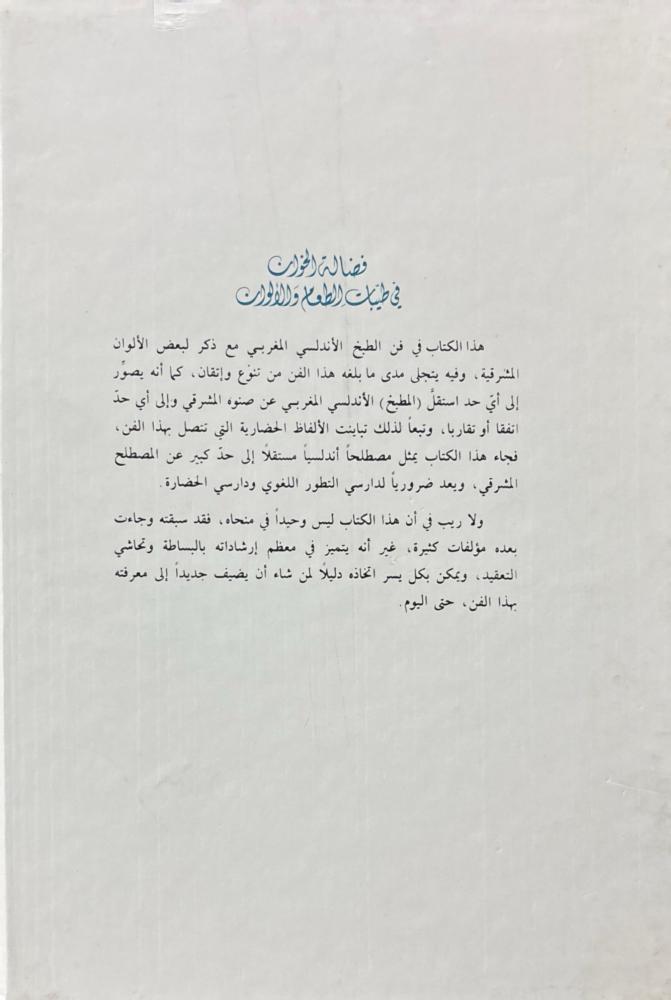 فضالة الخوان
في طيبات الطعام والألوان
هذا الكتاب في فن الطبخ الأندلسي المغربي مع ذكر لبعض الألوان
المشرقية، وفيه يتجلى مدى ما بلغه هذا الفن من تنوّع وإتقان، كما أنه يصوِّر
إلى أيّ حد استقلَّ (المطبخ) الأندلسي المغربي عن صنوه المشرقي وإلى أي حدّ
اتفقا أو تقاربا، وتبعاً لذلك تباينت الألفاظ الحضارية التي تتصل بهذا الفن،
فجاء هذا الكتاب يمثل مصطلحاً أندلسياً مستقلاً إلى حدّ كبير عن المصطلح
المشرقي، ويعد ضرورياً لدارسي التطور اللغوي ودارسي الحضارة.
ولا ريب في أن هذا الكتاب ليس وحيداً في منحاه، فقد سبقته وجاءت
بعده مؤلفات كثيرة، غير أنه يتميز في معظم إرشاداته بالبساطة وتحاشي
التعقيد، ويمكن بكل يسر اتخاذه دليلًا لمن شاء أن يضيف جديداً إلى معرفته
بهذا الفن، حتى اليوم.